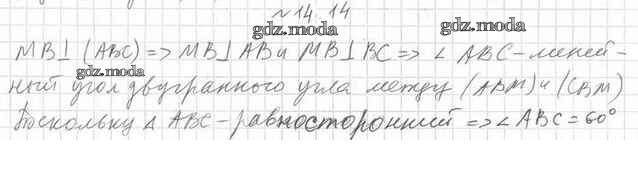 №14.14
gdz.moda gdz.moda
MB⊥(ABC) => MB⊥AB и MB⊥BC => ∠ABC - линей-
gdz.moda
ный угол двугранного угла между (ABM) и (CBM)
Поскольку △ABC - равносторонний => ∠ABC = 60°